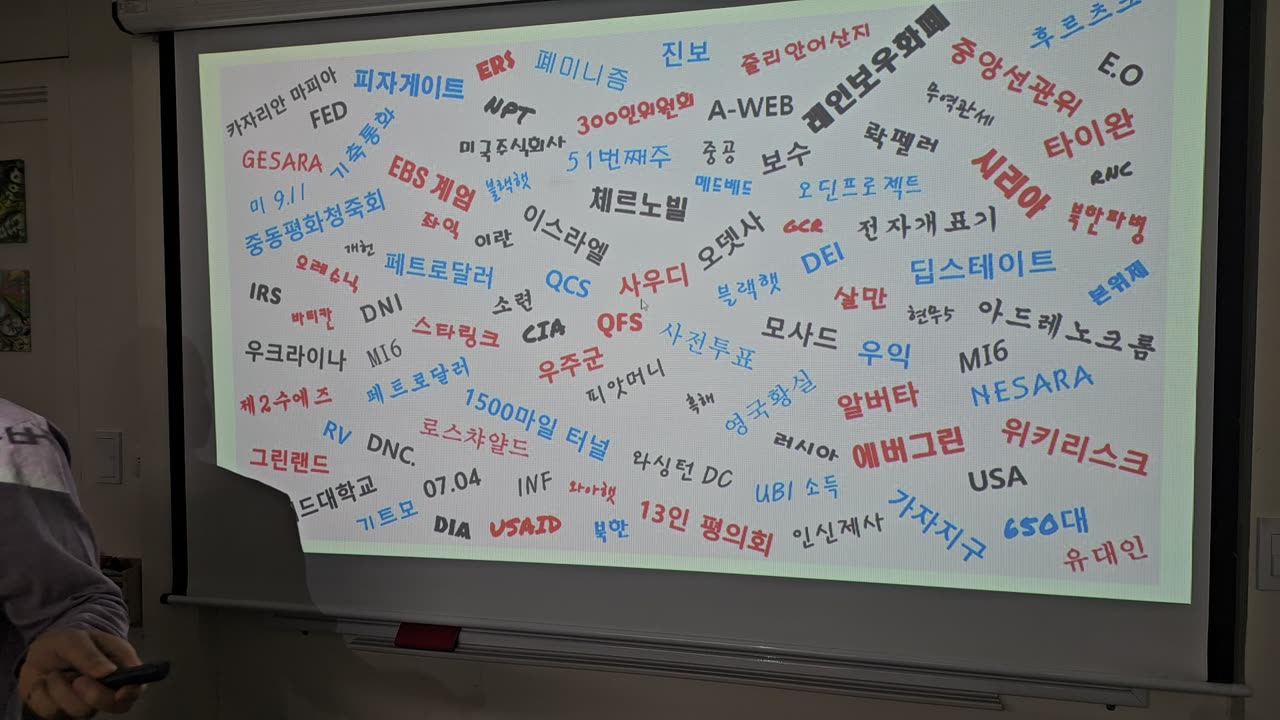 카자리안 마피아
피자게이트
ERS
폐미니즘
진보
줄리안어산지
레인보우화폐
중앙선관위
E.O
FED
NPT
300인위원회
A-WEB
타이완
GESARA
기축통화
미국주식회사
51번째주
중공
보수
락펠러
시리아
RNC
미 9.11
EBS 게엄
블랙햇
체르노빌
메드베드
오딘프로젝트
북한파병
중동평화청죽회
좌익
이란
이스라엘
오뎃사
GCR
전자개표기
개헌
오레슈닉
페트로달러
QCS
사우디
블랙햇
DEI
딥스테이트
본위제
IRS
바티칸
DNI
소련
살만
현무5
아드레노크롬
스타링크
CIA
QFS
사전투표
모사드
우크라이나
MI6
우주군
우익
MI6
제2수에즈
페트로달러
피앗머니
흑해
영국황실
알버타
NESARA
1500마일 터널
RV
DNC.
로스챠얄드
러시아
에버그린
위키리스크
그린랜드
와싱턴 DC
USA
드대학교
07.04
INF
와아햇
UBI 소득
가자지구
기트모
DIA
USAID
북한
13인 평의회
인신제사
650대
유대인